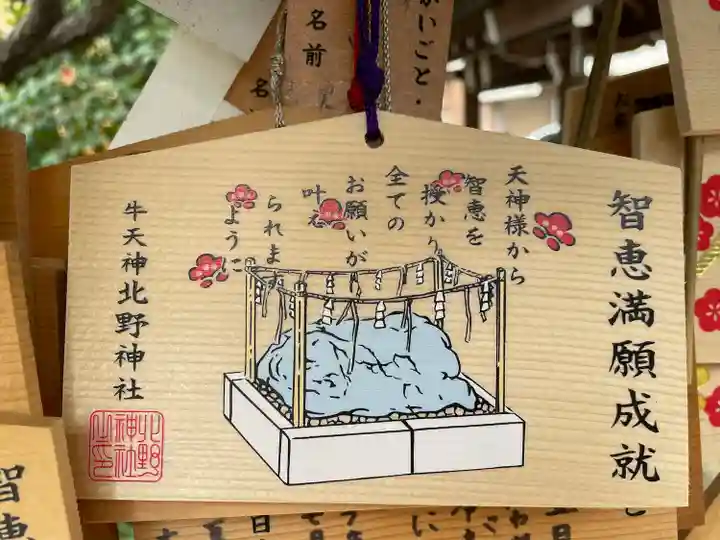 智恵満願成就
天神様から
智恵を
授かり
全ての
お願いが
叶え
られます
ように
牛天神北野神社
北野
神社
之印
がいごと・
名前
名
智恵